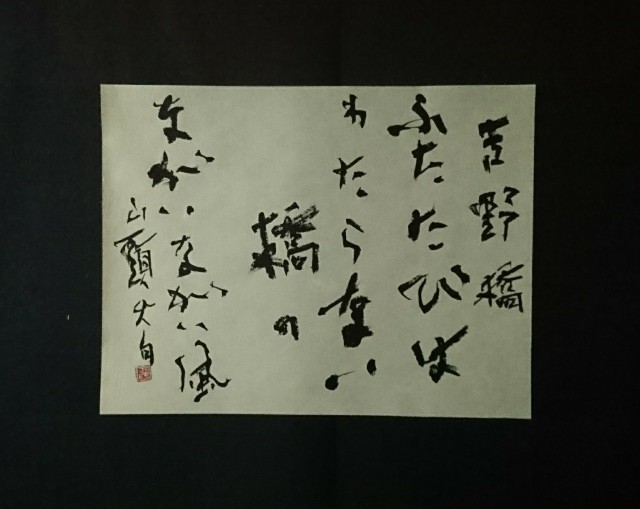 吉野橋
ふたたびは
わたらない
橋の
ながいながい風
山頭火句